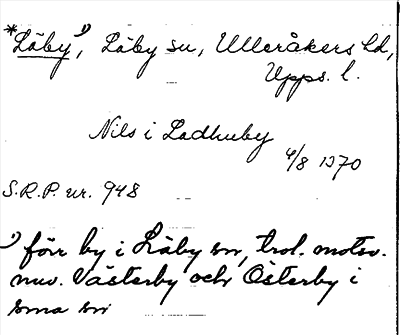 *Läby¹⁾, Läby sn, Ulleråkers hd,
Upps. l.
Nils i Ladhuby
4/8 1370
S.R.P. nr. 948
¹⁾ förr by i Läby sn, trol. motsv.
nuv. Västerby och Österby i
sma sn